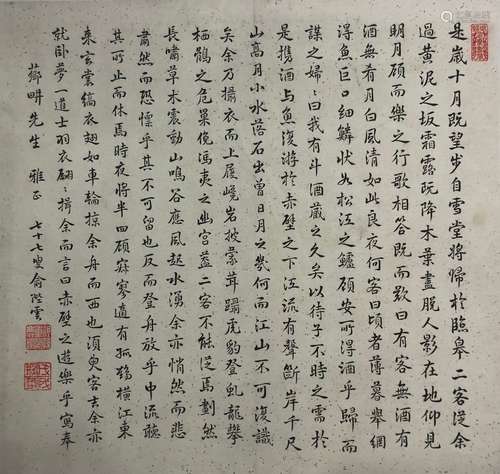 是歲十月既望步自雪堂將歸於臨皋二客從余
過黃泥之坂霜露既降木葉盡脫人影在地仰見
明月顧而樂之行歌相答既而歎曰有客無酒有
酒無肴月白風清如此良夜何客曰頃者薄暮舉網
得魚巨口細鱗狀如松江之鱸顧安所得酒乎歸而
謀之婦〻曰我有斗酒藏之久矣以待子不時之需於
是攜酒與魚復游於赤壁之下江流有聲斷岸千尺
山高月小水落石出曾日月之幾何而江山不可復識
矣余乃攝衣而上履巉岩披蒙茸踞虎豹登虬龍攀
栖鶻之危巢俯馮夷之幽宮蓋二客不能從焉劃然
長嘯草木震動山鳴谷應風起水湧余亦悄然而悲
肅然而恐懍乎其不可留也反而登舟放乎中流聽
其所止而休焉時夜將半四顧寂寥適有孤鶴橫江東
來玄裳縞衣翅如車輪掠余舟而西也須臾客去余亦
就臥夢一道士羽衣翩〻揖余而言曰赤壁之遊樂乎寫奉
薌畊先生 雅正 七十七叟俞陛雲